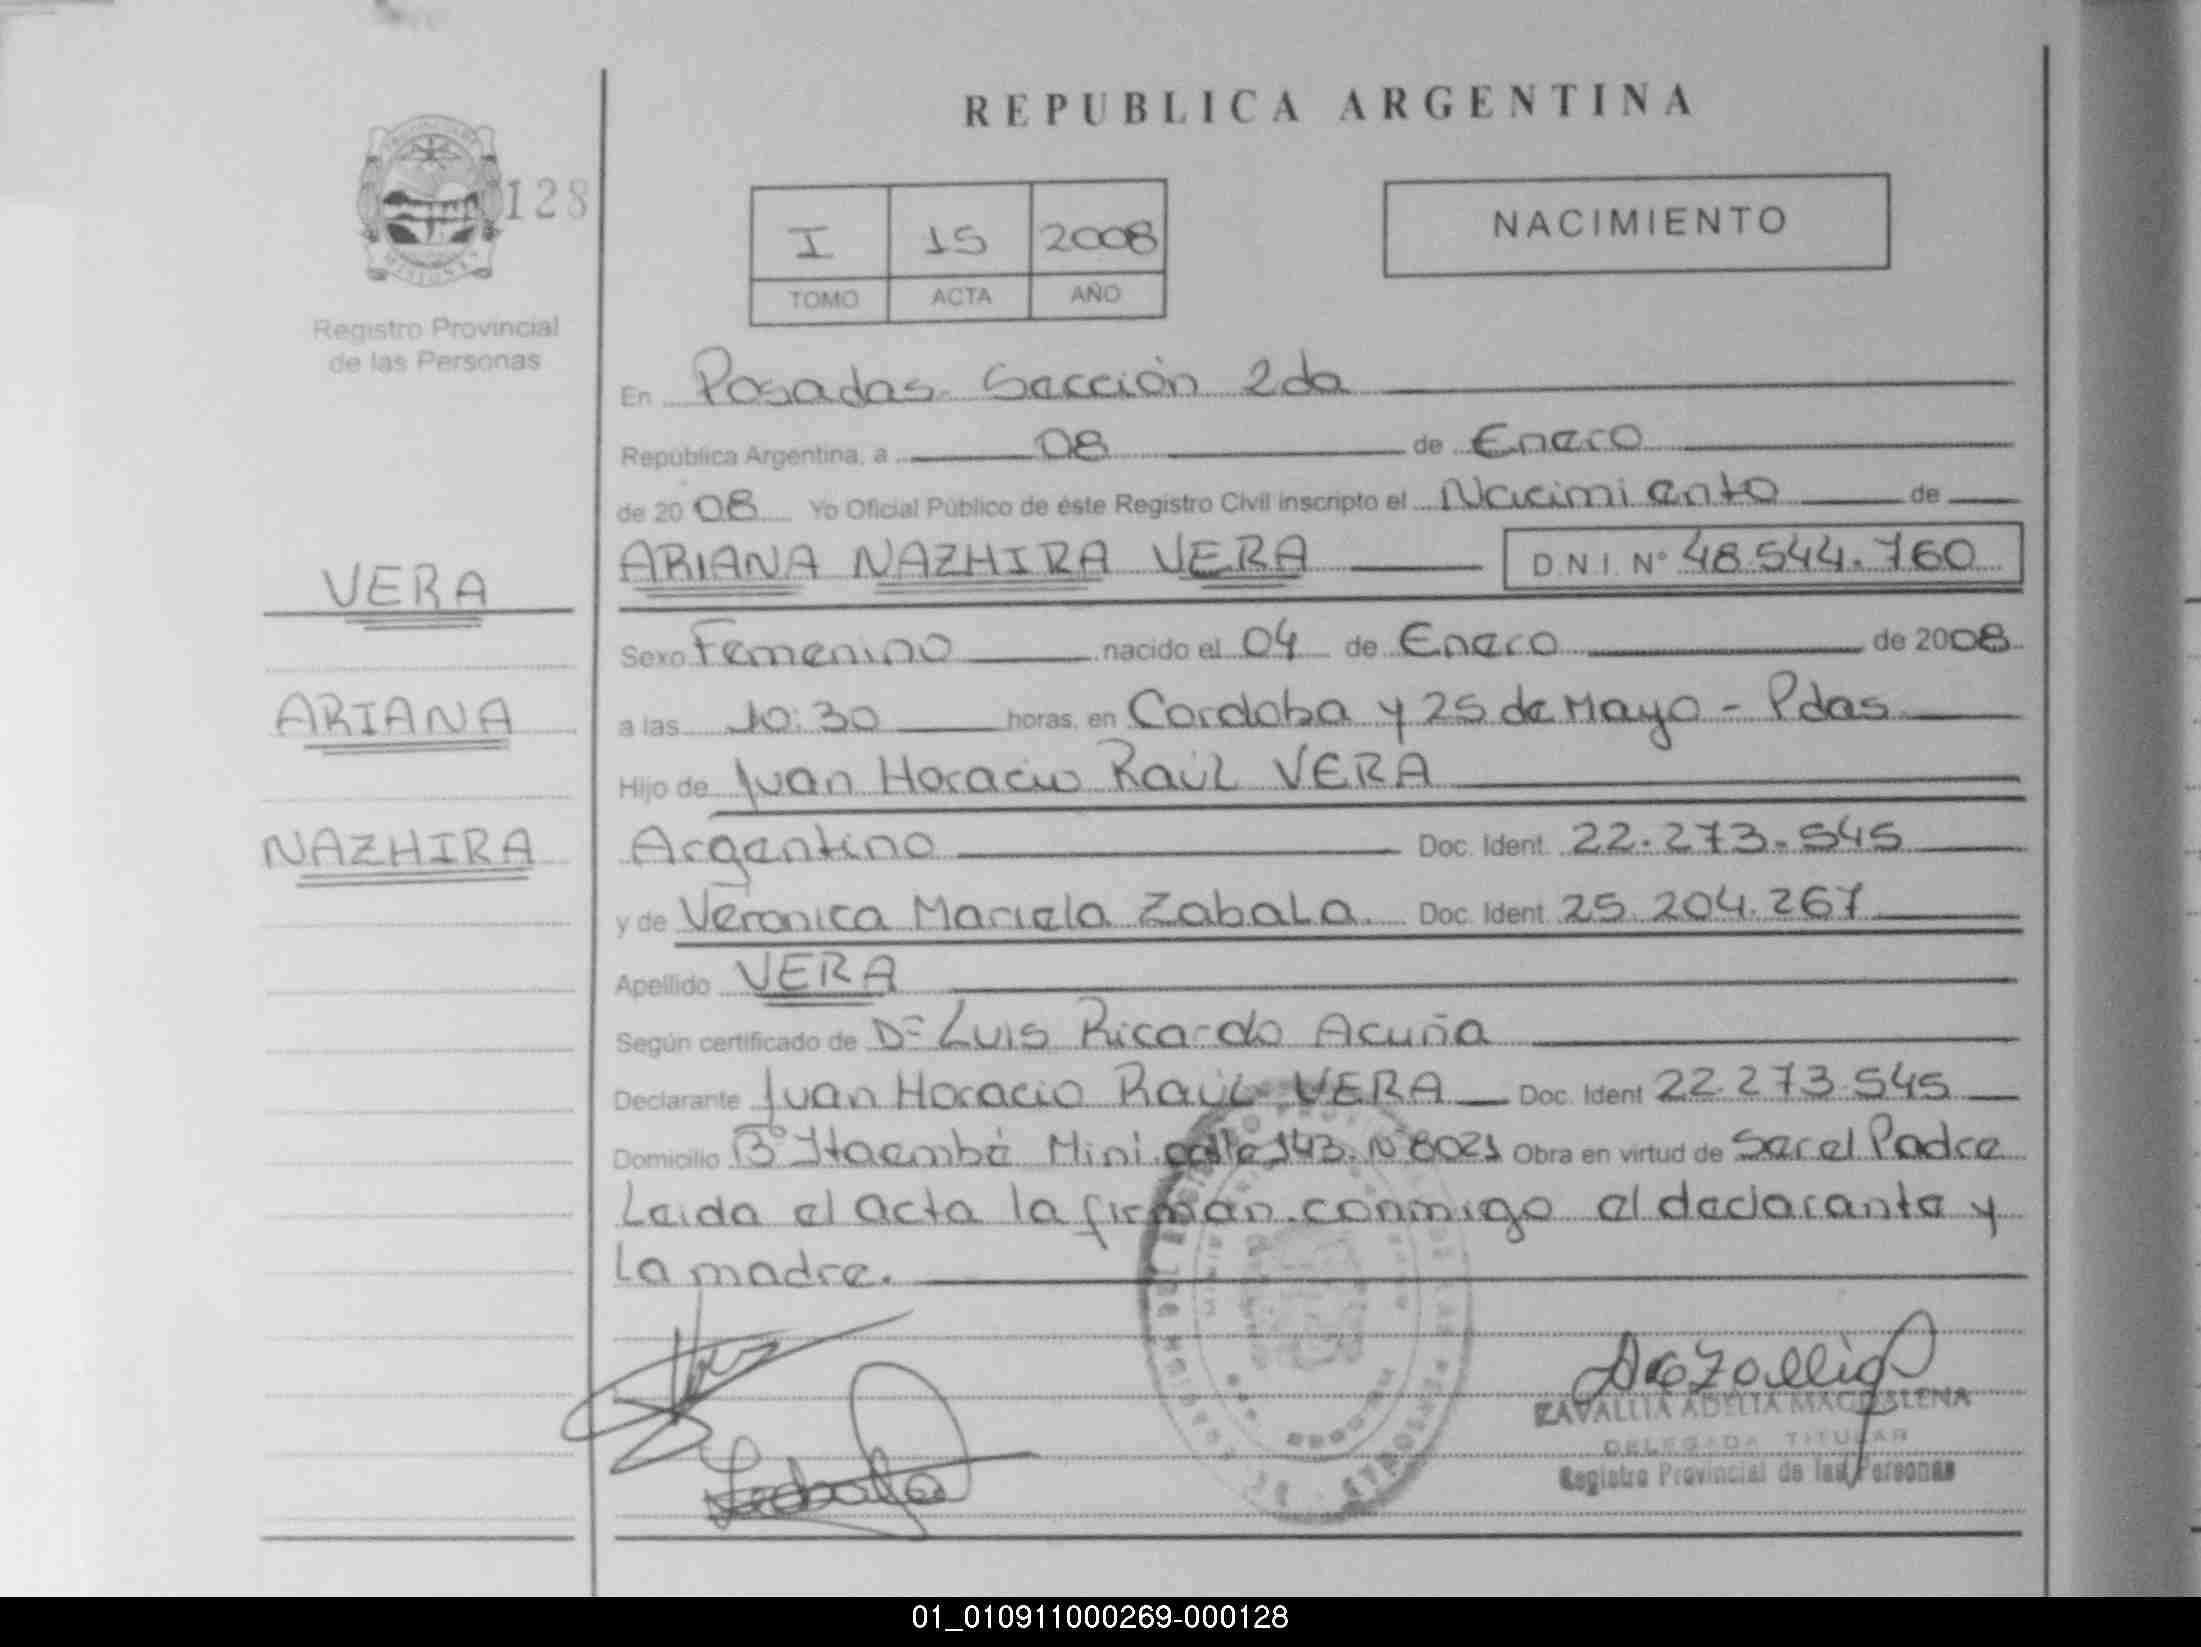 REPUBLICA ARGENTINA
128
I 15 2008
TOMO ACTA AÑO
NACIMIENTO
MISIONES
Registro Provincial
de las Personas
En Posadas. Sección 2da
República Argentina, a 08 de Enero
de 2008 Yo Oficial Público de éste Registro Civil inscripto el Nacimiento de
ARIANA NAZHIRA VERA D.N.I. Nº 48.544.760
Sexo Femenino nacido el 04 de Enero de 2008
a las 10:30 horas, en Cordoba y 25 de Mayo - Pdas
Hijo de Juan Horacio Raúl VERA
Argentino Doc. Ident. 22.273.545
y de Veronica Mariela Zabala. Doc. Ident. 25.204.267
Apellido VERA
Según certificado de Dr Luis Ricardo Acuña
Declarante Juan Horacio Raúl VERA Doc. Ident 22.273.545
Domicilio Bº Itaembé Mini calle 143. Nº 8021 Obra en virtud de Ser el Padre
Leida el acta la firman conmigo el declarante y
La madre.
VERA
ARIANA
NAZHIRA
ZAVALLIA ADELIA MAGDALENA
DELEGADA TITULAR
Registro Provincial de las Personas
01_010911000269-000128